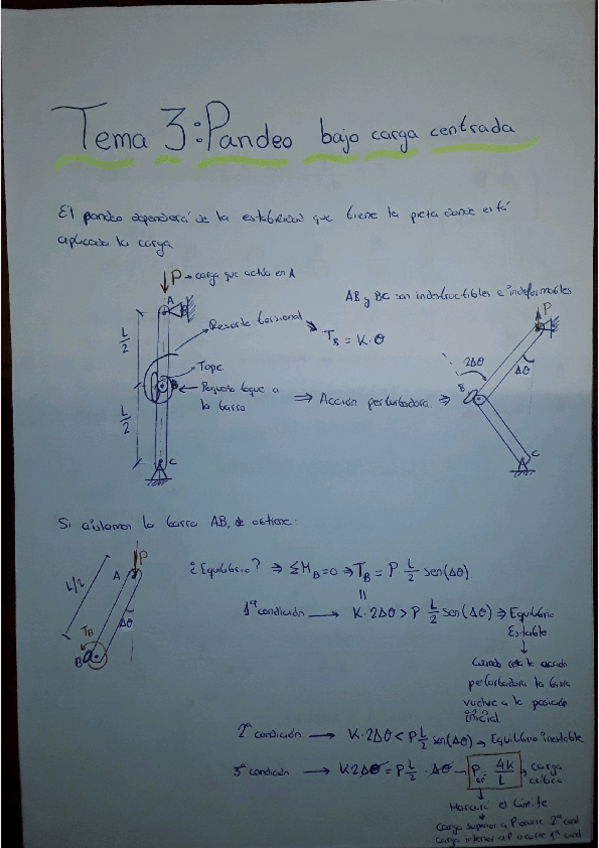 Tema 3: Pandeo bajo carga centrada
El pandeo dependerá de la estabilidad que tiene la pieza donde está
aplicado la carga
P → carga que actúa en A
A
AB y BC son indestructibles e indeformables
P
L/2
Resorte torsional
T_B = K·θ
Tope
2Δθ
Δθ
B
B
← Pequeño toque a
la barra
⇒ Acción perturbadora ⇒
L/2
C
C
Si aislamos la barra AB, se obtiene:
P
A
L/2
Δθ
T_B
B
¿Equilibrio? ⇒ ΣM_B=0 ⇒ T_B = P L/2 sen(Δθ)
=
1ª condición → K·2Δθ > P L/2 sen(Δθ) ⇒ Equilibrio
Estable
↓
Cuando cesa la acción
perturbadora la barra
vuelve a la posición
inicial
2ª condición → K·2Δθ < P L/2 sen(Δθ) → Equilibrio inestable
3ª condición → K·2Δθ = P L/2 · Δθ → P_cr = 4K/L → carga
crítica
↓
Marcará el límite
↓
Carga superior a P ocurre 2ª cond
Carga inferior a P ocurre 1ª cond